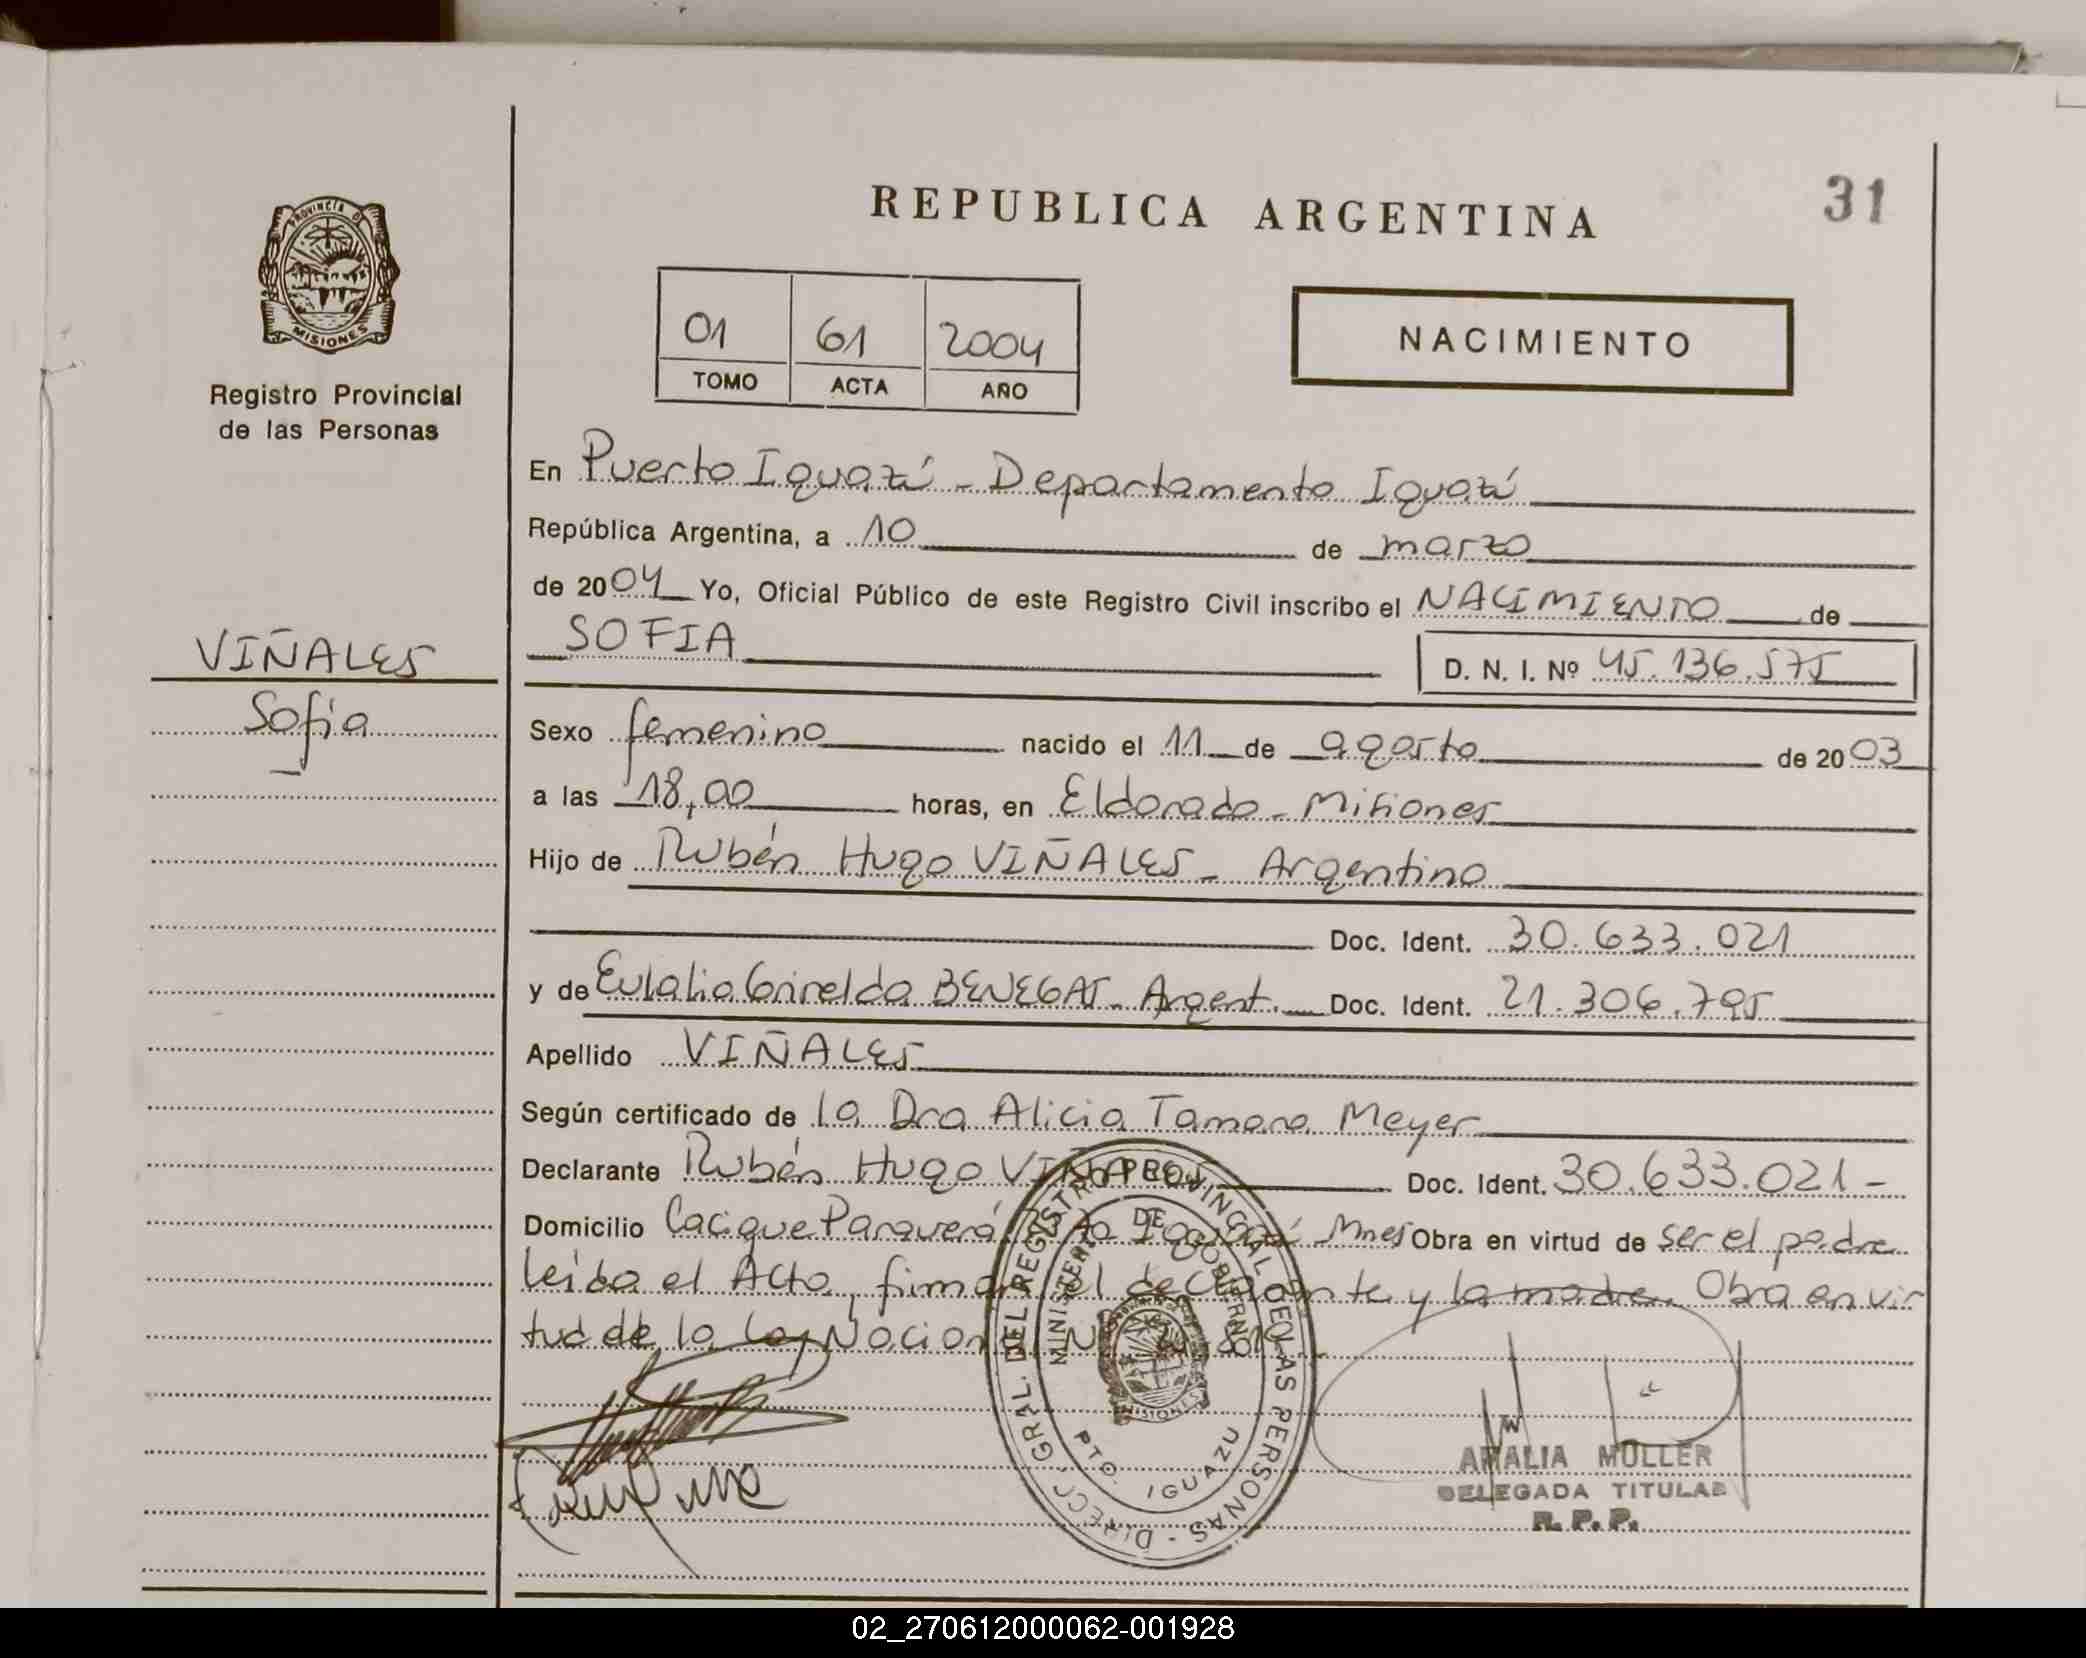 REPUBLICA ARGENTINA
31
PROVINCIA D
MISIONES
Registro Provincial
de las Personas
01 61 2004
TOMO ACTA AÑO
NACIMIENTO
En Puerto Iguazú - Departamento Iguazú
República Argentina, a 10 de marzo
de 2004 Yo, Oficial Público de este Registro Civil inscribo el NACIMIENTO de
SOFIA
D. N. I. Nº 45.136.575
VIÑALES
Sofia
Sexo femenino nacido el 11 de agosto de 2003
a las 18,00 horas, en Eldorado - Misiones
Hijo de Rubén Hugo VIÑALES - Argentino
Doc. Ident. 30.633.021
y de Eulalia Griselda BENEGAS - Argent. Doc. Ident. 21.306.795
Apellido VIÑALES
Según certificado de la Dra Alicia Tamara Meyer
Declarante Rubén Hugo VIÑALES Doc. Ident. 30.633.021 -
Domicilio Cacique Paraverá Pto Iguazú Mnes Obra en virtud de ser el padre
leida el Acta, firman el declarante y la madre. Obra en vir
tud de la Ley Nacional Nº
DIRECC. GRAL. DEL REGISTRO PROVINCIAL DE LAS PERSONAS -
MINISTERIO DE GOBIERNO
MISIONES
PTO. IGUAZU
AMALIA MULLER
DELEGADA TITULAR
R. P. P.
02_270612000062-001928